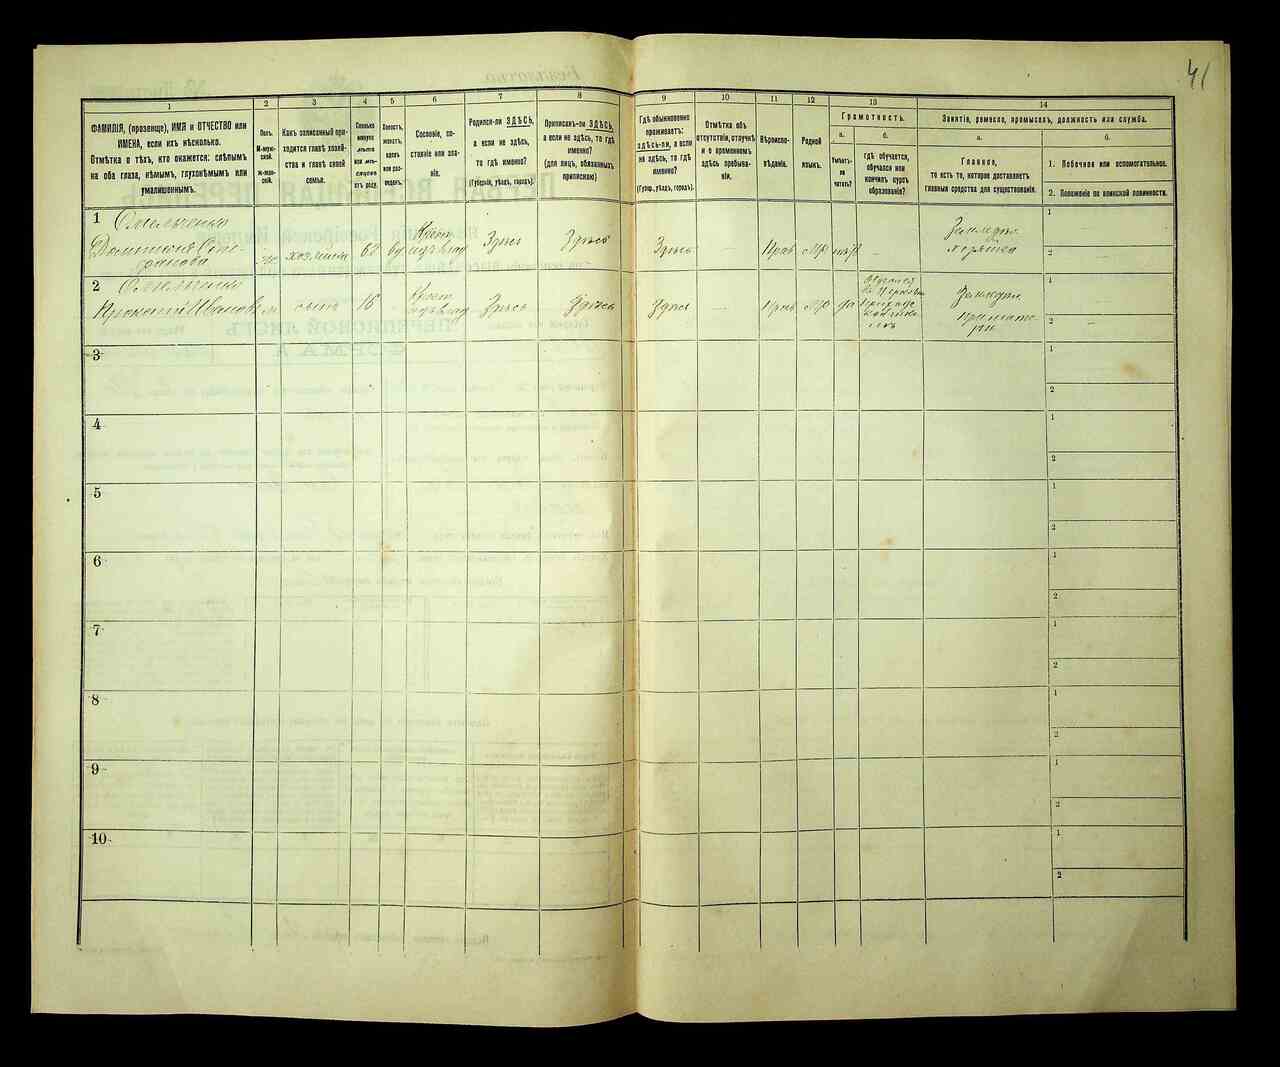 41
1
2
3
4
5
6
7
8
9
10
11
12
13
14
ФАМИЛІЯ, (прозвище), ИМЯ и ОТЧЕСТВО или
ИМЕНА, если ихъ нѣсколько.
Отмѣтка о тѣхъ, кто окажется: слѣпымъ
на оба глаза, нѣмымъ, глухонѣмымъ или
умалишеннымъ.
Полъ.
М-муж-
ской.
ж-жен-
скій.
Какъ записанный при-
ходится главѣ хозяй-
ства и главѣ своей
семьи.
Сколько
минуло
лѣтъ
или мѣ-
сяцевъ
отъ роду.
Холостъ,
женатъ,
вдовъ
или раз-
веденъ.
Сословіе, со-
стояніе или зва-
ніе.
Родился-ли ЗДѢСЬ,
а если не здѣсь,
то гдѣ именно?
(Губернія, уѣздъ, городъ).
Приписанъ-ли ЗДѢСЬ,
а если не здѣсь, то гдѣ
именно?
(для лицъ, обязанныхъ
припискою)
Гдѣ обыкновенно
проживаетъ:
здѣсь-ли, а если
не здѣсь, то гдѣ
именно?
(Губер., уѣздъ, городъ).
Отмѣтка объ
отсутствіи, отлучкѣ
и о временномъ
здѣсь пребыва-
ніи.
Вѣроиспо-
вѣданіе.
Родной
языкъ.
Грамотность.
а.
Умѣетъ-
ли
читать?
б.
гдѣ обучается,
обучался или
кончилъ курсъ
образованія?
Занятіе, ремесло, промыселъ, должность или служба.
а.
Главное,
то есть то, которое доставляетъ
главныя средства для существованія.
б.
1. Побочное или вспомогательное.
2. Положеніе по воинской повинности.
1 Омельченко
Домникія Сте-
фанова
ж хозяйка 62 вд
Крест
Здѣсь Здѣсь Здѣсь — Прав МР нѣт —
Землед
хозяйка
1
2 —
2 Омельченко
Прокопій Иванов м сынъ 16 -
Крест
Здѣсь Здѣсь Здѣсь — Прав МР да
Землед
При мате-
ри
1
2 —
3
1
2
4
1
2
5
1
2
6
1
2
7
1
2
8
1
2
9
1
2
10
1
2